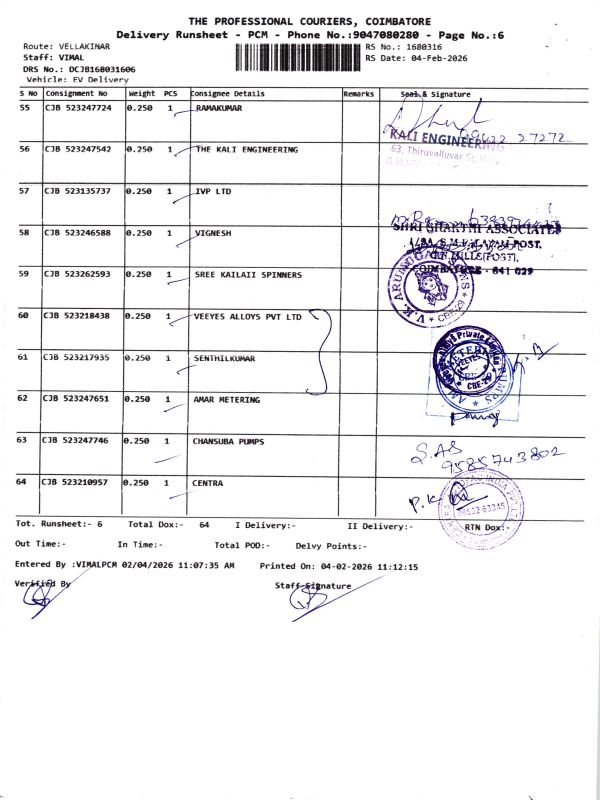 THE PROFESSIONAL COURIERS, COIMBATORE
Delivery Runsheet - PCM - Phone No.:9047080280 - Page No.:6
Route: VELLAKINAR
RS No.: 1680316
Staff: VIMAL
RS Date: 04-Feb-2026
DRS No.: DCJB168031606
Vehicle: EV Delivery
S No Consignment No Weight PCS Consignee Details Remarks Seal & Signature
55 CJB 523247724 0.250 1 RAMAKUMAR
KALI ENGINEERING
63, Thiruvalluvar St,
56 CJB 523247542 0.250 1 THE KALI ENGINEERING
57 CJB 523135737 0.250 1 IVP LTD
SHRI SHAKTHI ASSOCIATES
58 CJB 523246588 0.250 1 VIGNESH
COIMBATORE - 641 029
59 CJB 523262593 0.250 1 SREE KAILAII SPINNERS
CBE-29
60 CJB 523218438 0.250 1 VEEYES ALLOYS PVT LTD
61 CJB 523217935 0.250 1 SENTHILKUMAR
CBE-29
62 CJB 523247651 0.250 1 AMAR METERING
63 CJB 523247746 0.250 1 CHANSUBA PUMPS
S.AS
9585743802
64 CJB 523210957 0.250 1 CENTRA
P.K
Tot. Runsheet:- 6 Total Dox:- 64 I Delivery:- II Delivery:- RTN Dox:-
Out Time:- In Time:- Total POD:- Delvy Points:-
Entered By :VIMALPCM 02/04/2026 11:07:35 AM Printed On: 04-02-2026 11:12:15
Verified By Staff Signature